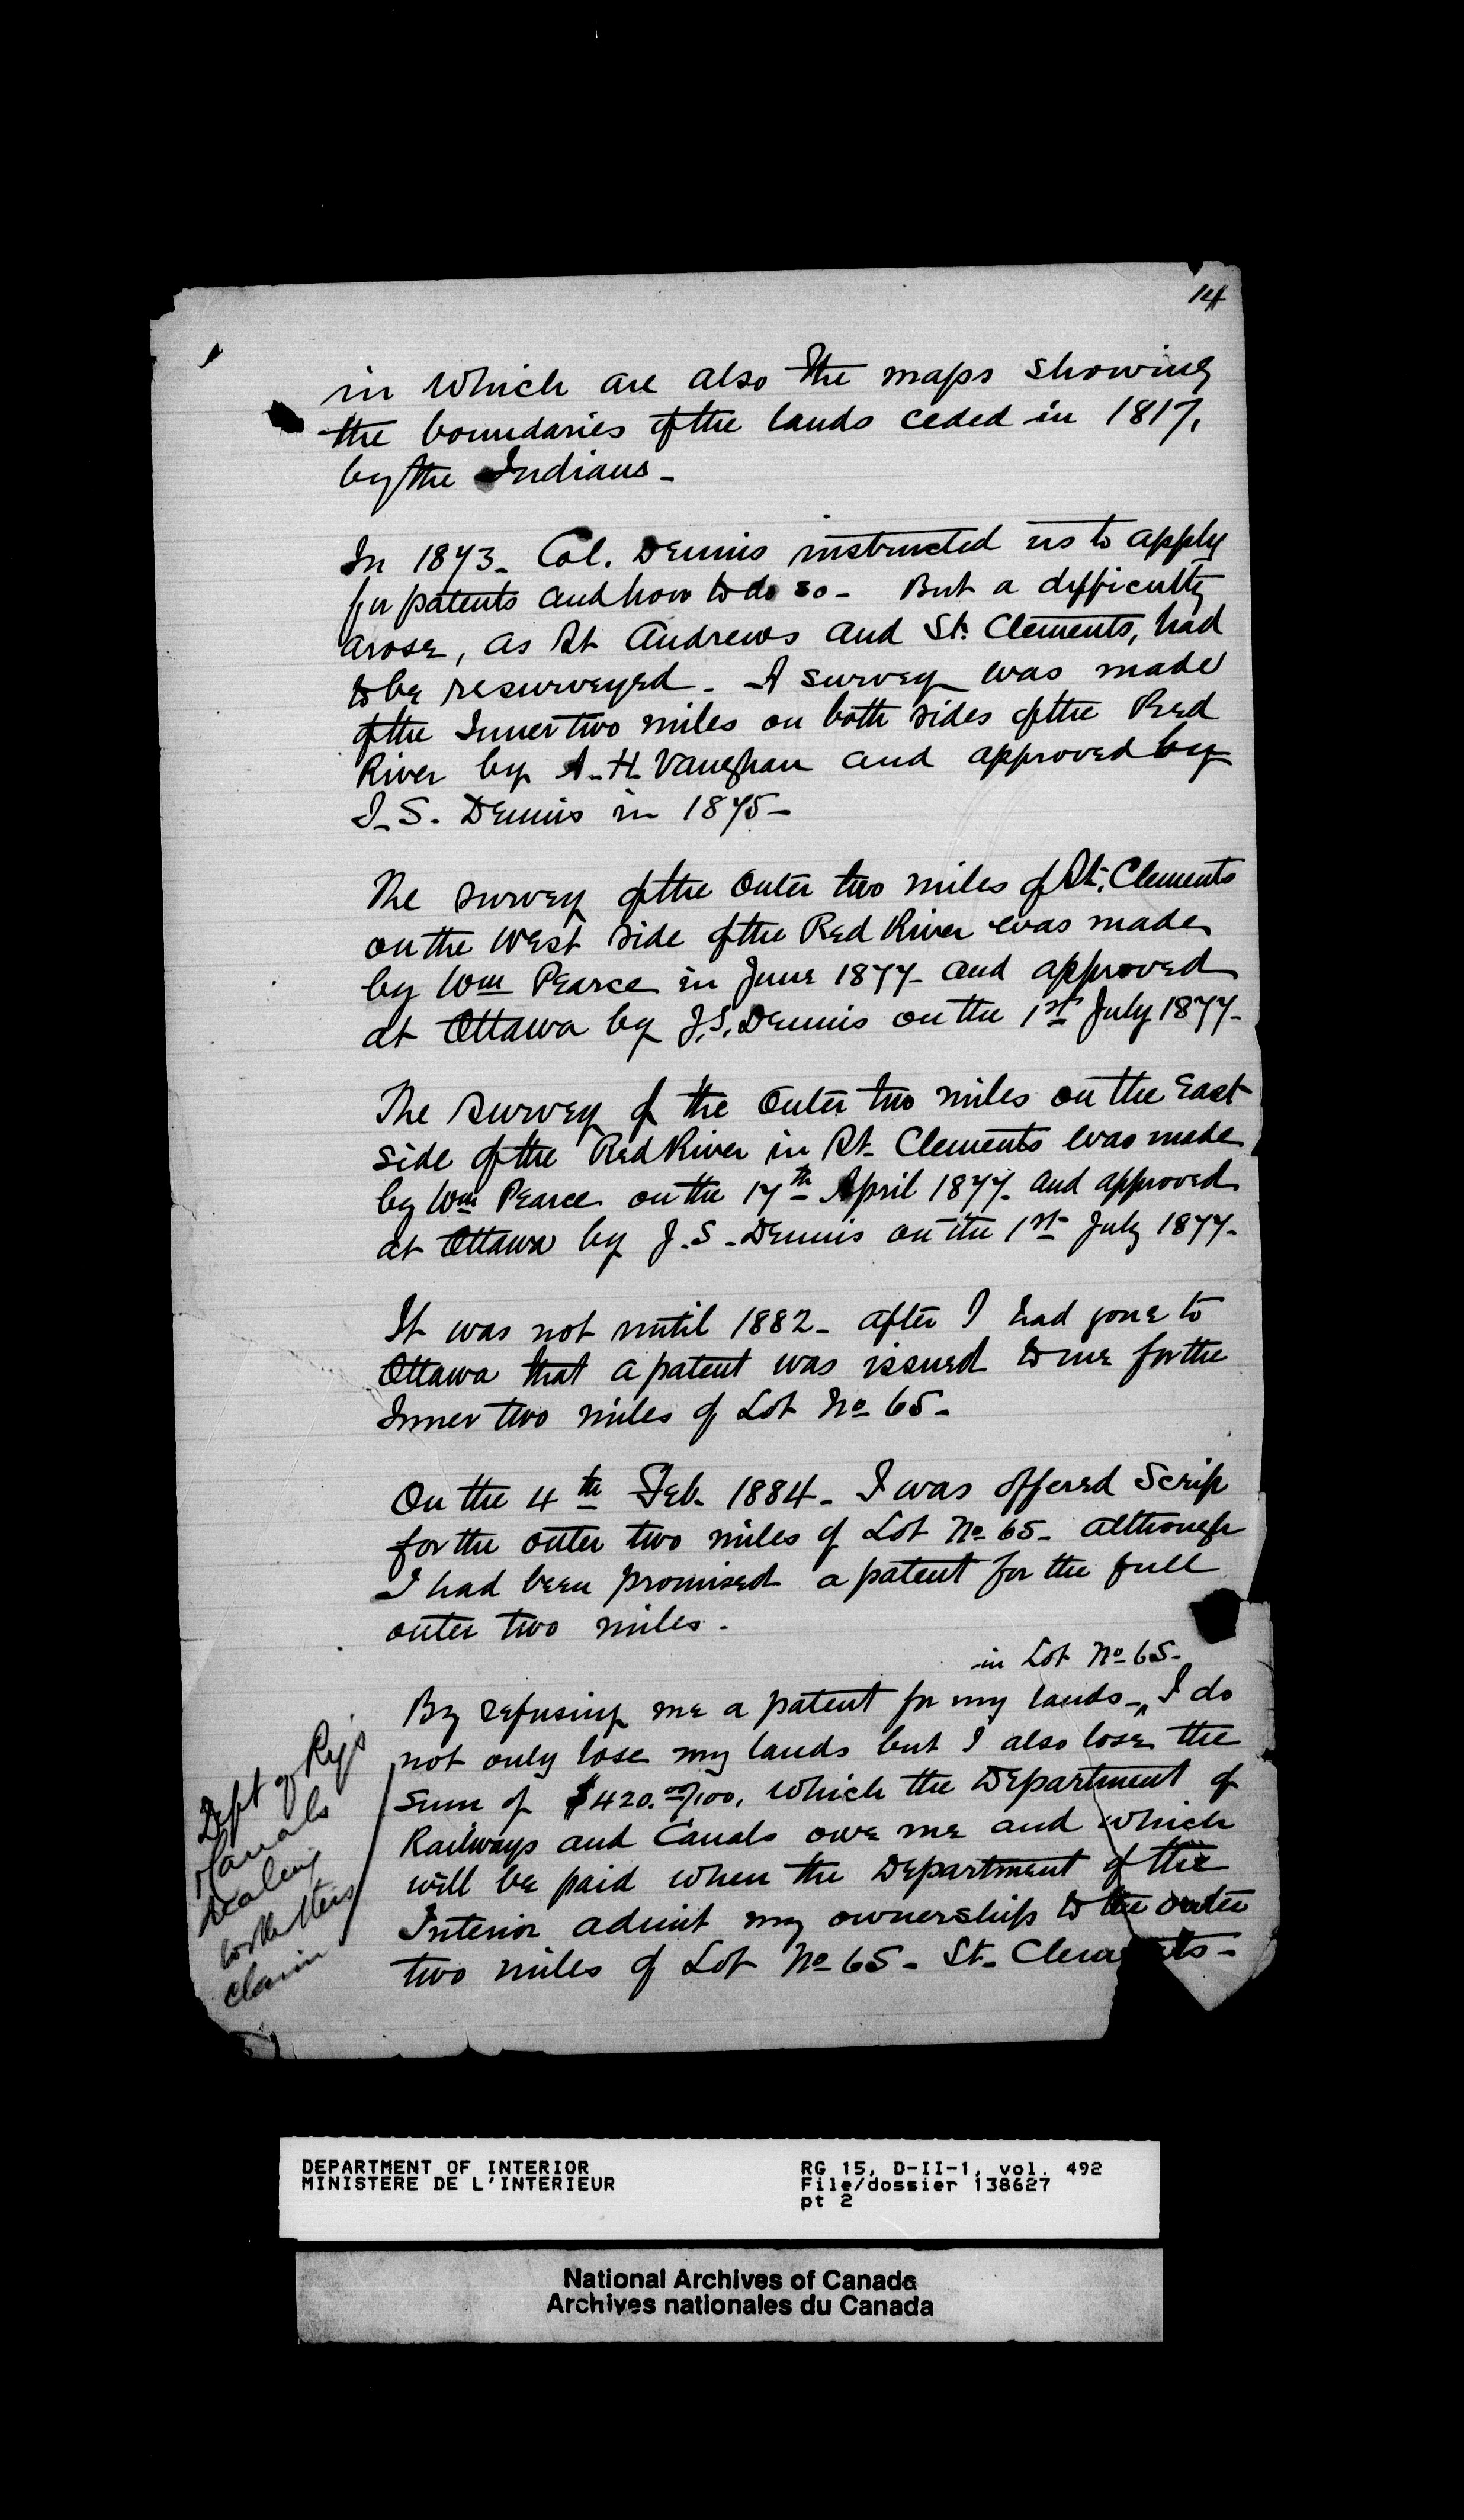 14
in which are also the maps showing
the boundaries of the lands ceded in 1817,
by the Indians -
In 1873 - Col. Dennis instructed us to apply
for patents and how to do so - But a difficulty
arose, as St Andrews and St. Clements, had
to be resurveyed - A survey was made
of the Inner two miles on both sides of the Red
River by A. H. Vaughan and approved by
J. S. Dennis in 1875 -
The survey of the Outer two miles of St. Clements
on the West side of the Red River was made
by Wm Pearce in June 1877 - and approved
at Ottawa by J. S. Dennis on the 1st July 1877 -
The survey of the Outer two miles on the East
side of the Red River in St. Clements was made
by Wm Pearce on the 17th April 1877 - and approved
at Ottawa by J. S. Dennis on the 1st July 1877 -
It was not until 1882 - after I had gone to
Ottawa that a patent was issued to me for the
Inner two miles of Lot No 65 -
On the 4th Feb. 1884 - I was offered Scrip
for the outer two miles of Lot No 65 - although
I had been promised a patent for the full
outer two miles.
in Lot No 65 -
By refusing me a patent for my lands - ^ I do
not only lose my lands but I also lose the
sum of $420.00/100, which the Department of
Railways and Canals owe me and which
will be paid when the Department of the
Interior admit my ownership to the outer
two miles of Lot No 65 - St. Clements -
Dept of Rys
Canals
Dealing
claim
DEPARTMENT OF INTERIOR
MINISTERE DE L'INTERIEUR
RG 15, D-II-1, vol. 492
File/dossier 138627
pt 2
National Archives of Canada
Archives nationales du Canada